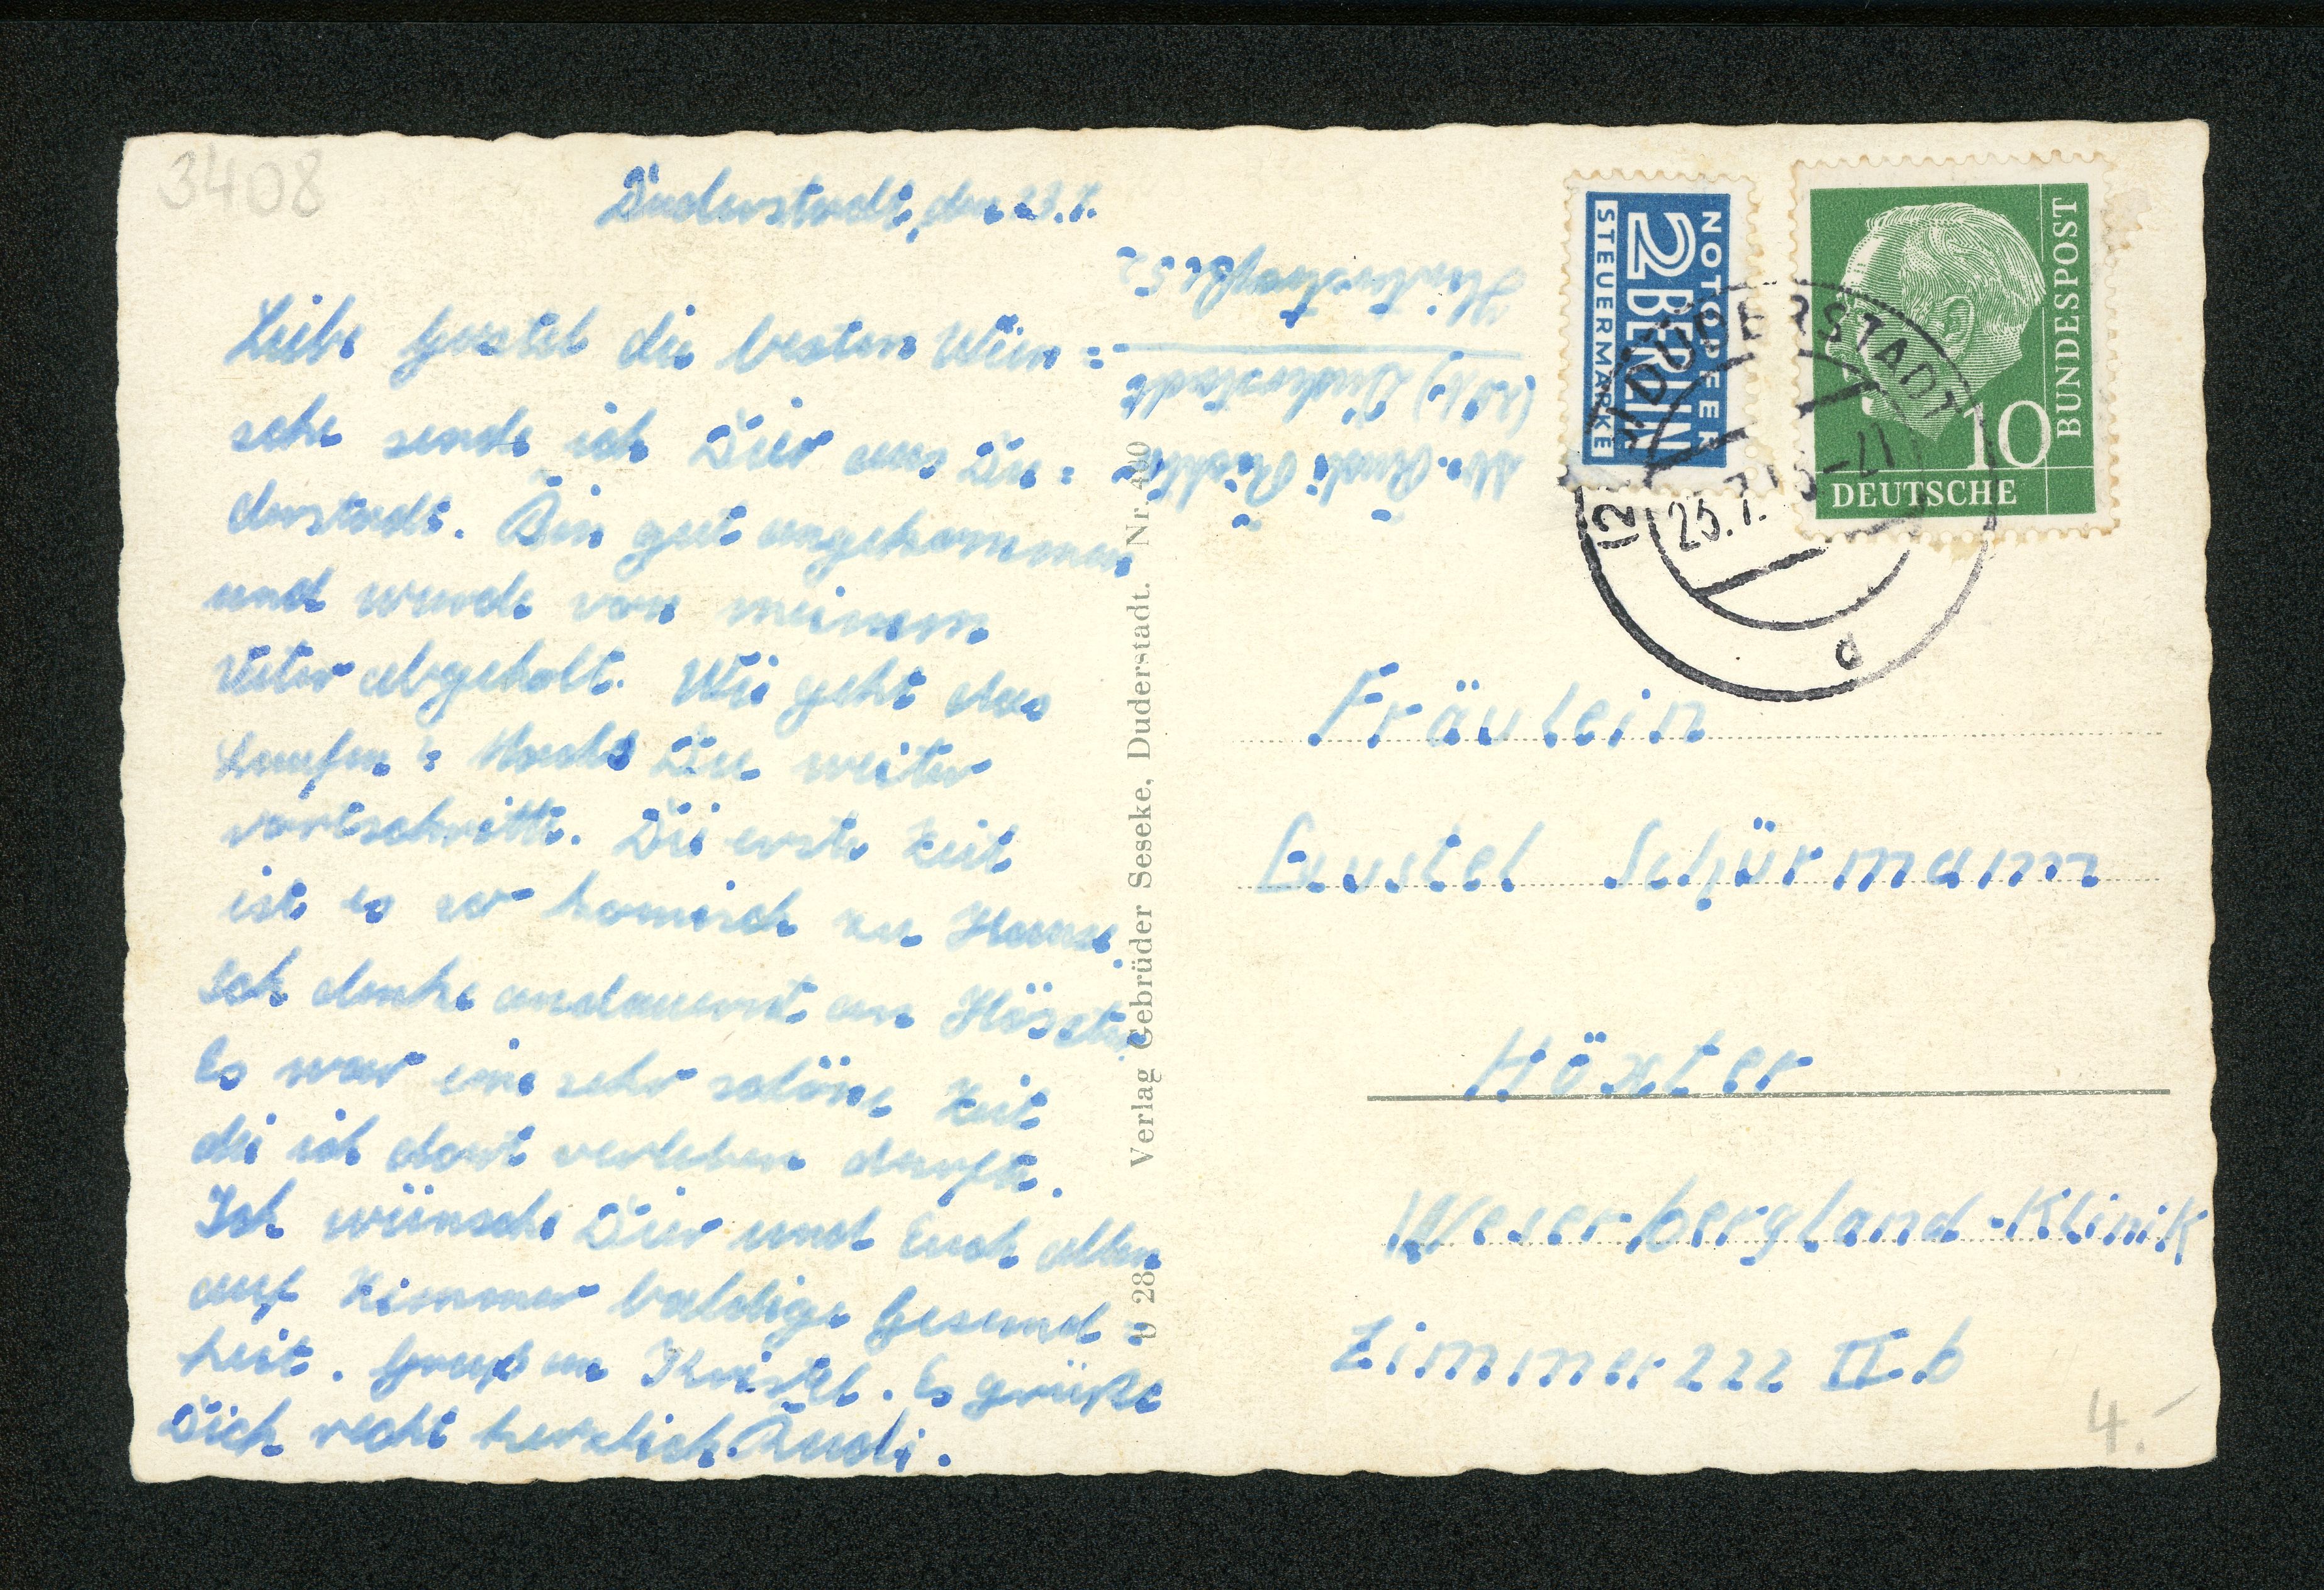 3408
Duderstadt, den 23.7.
Liebe Gustel die besten Wün=
sche sende ich Dier aus Du=
derstadt. Bin gut angekommen
und wurde von meinem
Vater abgeholt. Wie geht das
Laufen? Machs Du weiter
vortschritte. Die erste Zeit
ist es so komisch zu Hause.
Ich denke andauernt an Höxter.
Es war eine sehr schöne Zeit
die ich dort verleben durfte.
Ich wünsche Dier und Euch allen
auf Zimmer baldige Gesund=
heit. Gruß an Kristel. Es grüßt
Dich recht herzlich Rudi.
Rudi
Duderstadt
52
Verlag Gebrüder Seseke, Duderstadt. Nr. 400
28
NOTOPFER
2 BERLIN
STEUERMARKE
10
DEUTSCHE
BUNDESPOST
DUDERSTADT
d
Fräulein
Gustel Schürmann
Höxter
Weserbergland-Klinik
Zimmer 222 II b
4.-